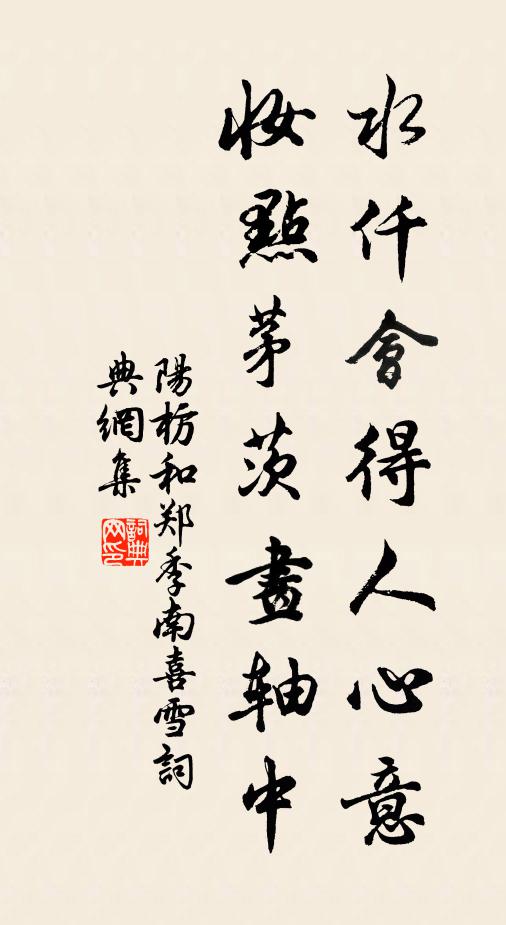 水仟會得人心意
妝點茅茨畫軸中
陽枋和郑季南喜雪詞
典網集
詞典网印